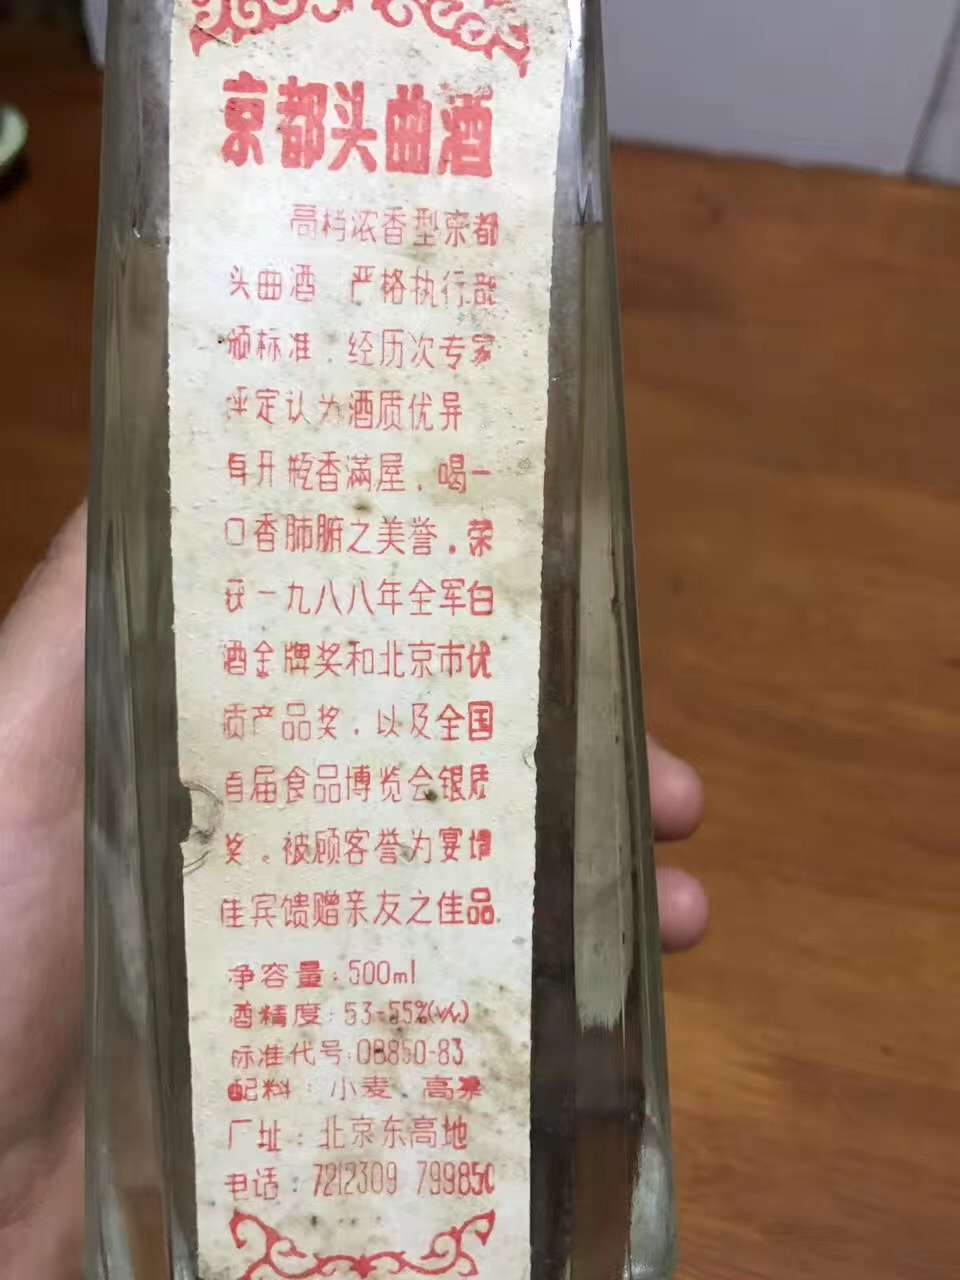 京都头曲酒
高档浓香型京都
头曲酒 严格执行部
颁标准．经历次专家
评定认为酒质优异
具开瓶香滿屋．喝一
口香肺腑之美誉．荣
获一九八八年全军白
酒金牌奖和北京市优
质产品奖．以及全国
首届食品博览会银质
奖．被顾客誉为宴请
佳宾馈赠亲友之佳品．
净容量：500ml
酒精度：53-55%(v/v)
标准代号：QB850-83
配料：小麦 高粱
厂址：北京东高地
电话：7212309 799850